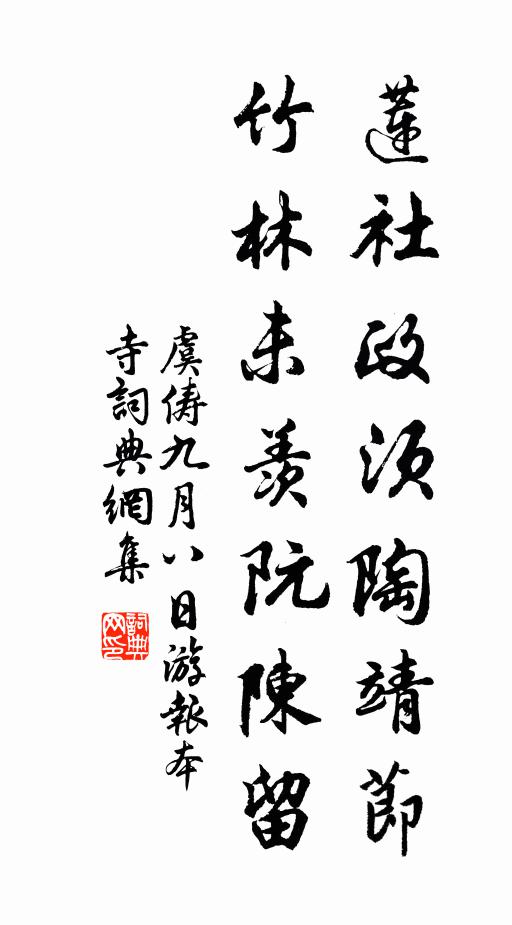 蓮社政須陶靖節
竹林未羨阮陳留
虞儔九月八日游報本
寺詞典網集
詞典
网印